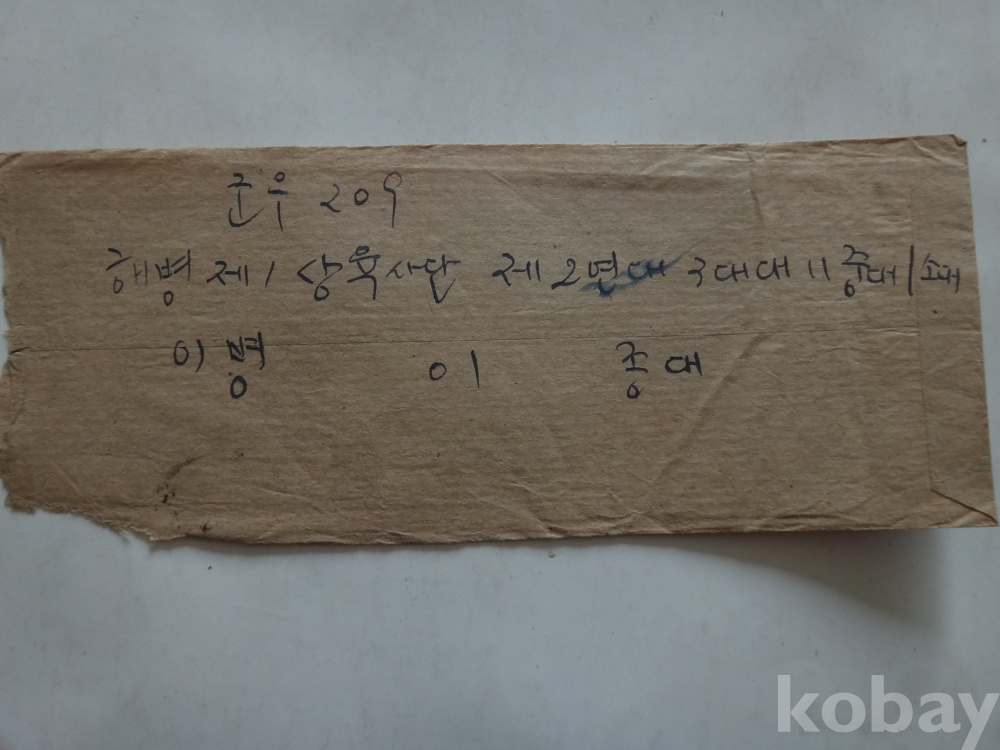 군우 209
해병 제1 상육사단 제2연대 3대대 11중대 1소대
이병 이 종대
kobay